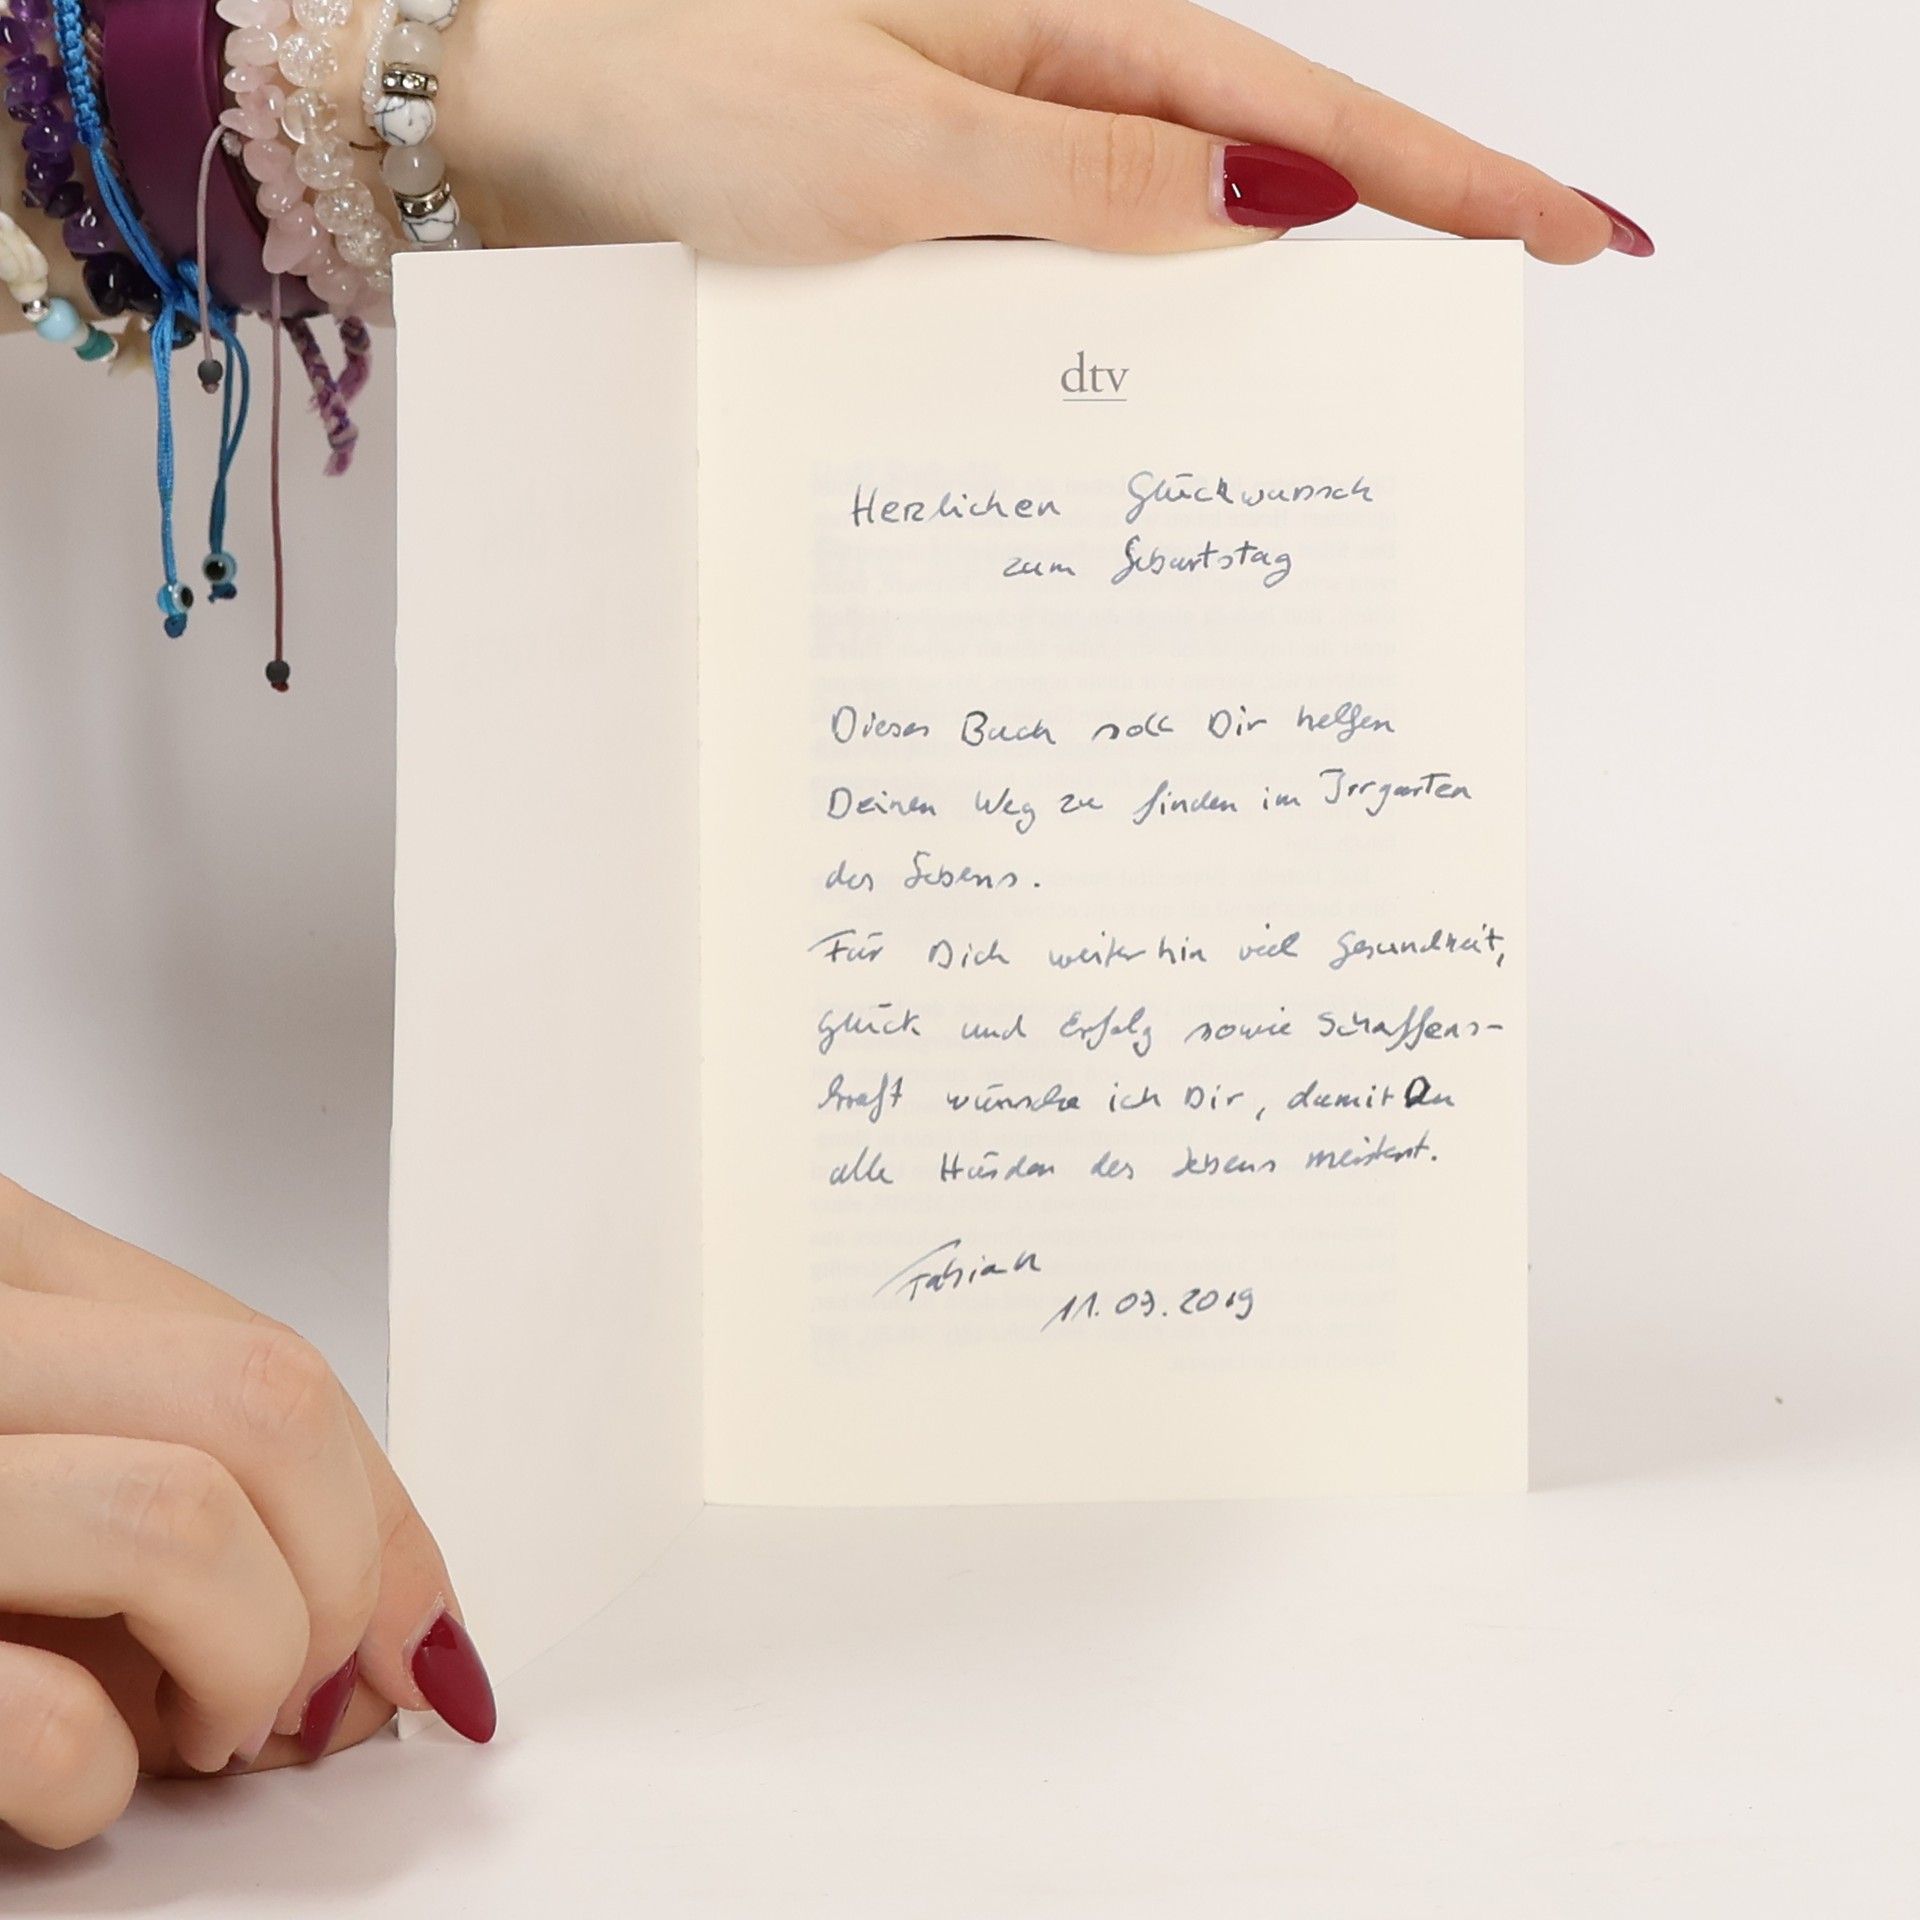 dtv
Herzlichen Glückwunsch
zum Geburtstag
Dieses Buch soll Dir helfen
Deinen Weg zu finden im Irrgarten
des Lebens.
Für Dich weiterhin viel Gesundheit,
Glück und Erfolg sowie Schaffens-
kraft wünsche ich Dir, damit Du
alle Hürden des Lebens meisterst.
Fabian
11.09.2019